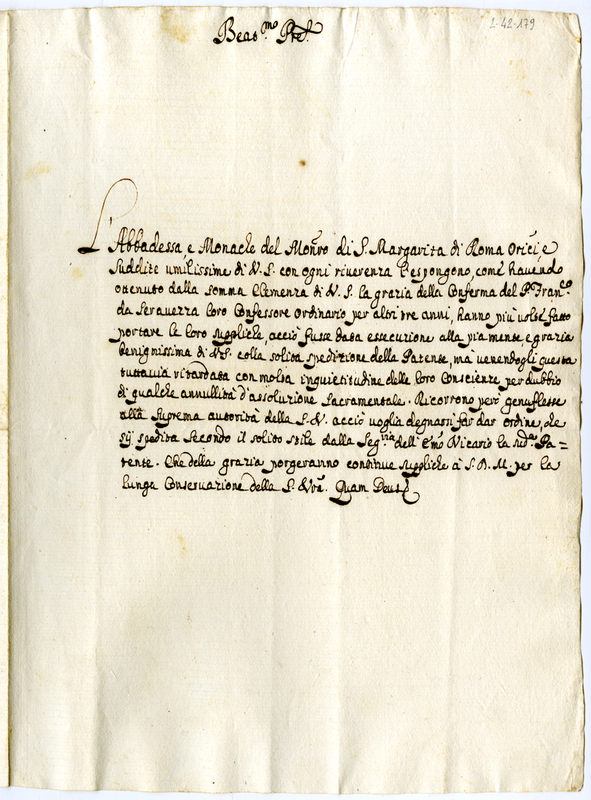 2-42-179
Beat.mo Pre.
L'Abbadessa e Monache del Mon.ro di S. Margarita di Roma Or.ci e
suddite umilissime di V.S. con ogni riverenza l'espongono, come havendo
ottenuto dalla somma clemenza di V.S. la grazia della conferma del P. Fran.co
da Seravezza loro Confessore ordinario per altri tre anni, hanno più volte fatto
portare le loro suppliche, acciò fusse data essecuzione alla pia mente e grazia
benignissima di V.S. colla solita spedizione della Patente, ma venendogli questa
tuttavia ritardata con molta inquietitudine delle loro Conscienze per dubbio
di qualche annullità d'assoluzione Sacramentale. Ricorrono però genuflesse
alla suprema autorità della S.V. acciò voglia degnarsi far dar ordine, che
sij spedita secondo il solito stile dalla Seg.ria dell'Emo Vicario la sud.a Pa=
tente. Che della grazia porgeranno continue suppliche à S.D.M. per la
lunga Conservazione della S. Vra. Quam Deus